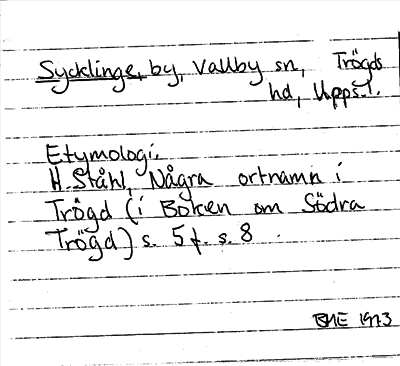 Sycklinge, by, Vallby sn, Trögds
hd, Upps.l.
Etymologi.
H. Ståhl, Några ortnamn i
Trögd (i Boken om Södra
Trögd) s. 5 f. s. 8
1973